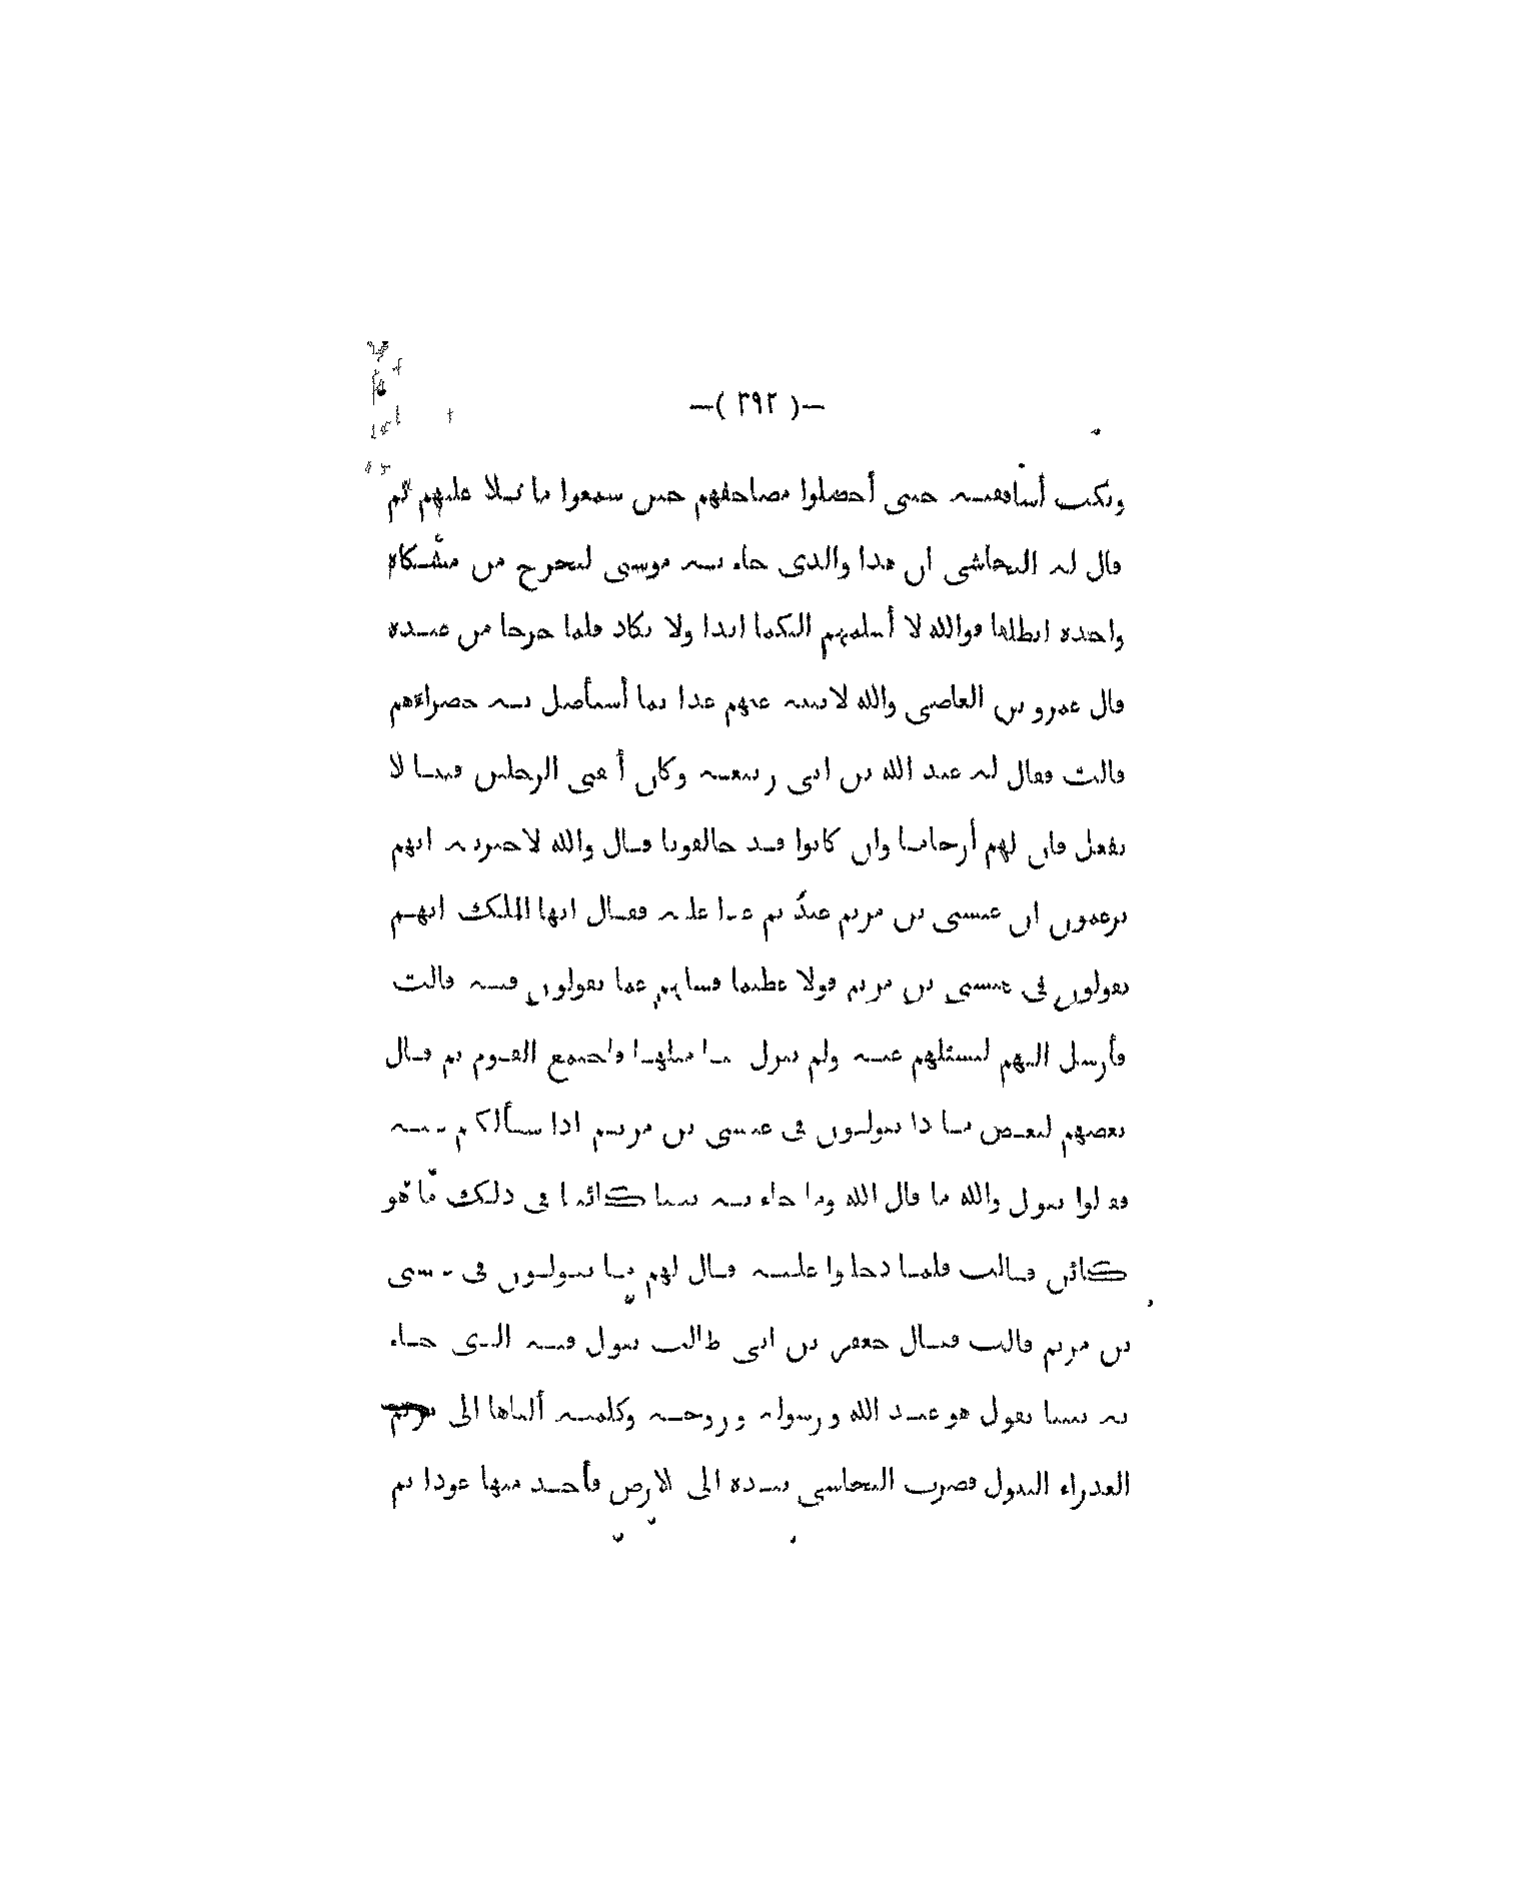 —( ٣٩٢ )—
وبكت أساقفته حتى أخضلوا مصاحفهم حين سمعوا ما تلا عليهم ثم
قال له النجاشى ان هذا والذى جاء به موسى ليخرج من مشكاة
واحدة انطلقا فوالله لا أسلمهم اليكما ابدا ولا يكاد فلما خرجا من عنده
قال عمرو بن العاصى والله لاتينه عنهم غدا بما أستأصل به خضراءهم
قالت فقال له عبد الله بن ابى ربيعة وكان أتقى الرجلين فينا لا
نفعل فان لهم أرحاما وان كانوا قد خالفونا قال والله لاخبرنه انهم
يزعمون ان عيسى بن مريم عبد ثم غدا عليه فقال ايها الملك انهم
يقولون فى عيسى بن مريم قولا عظيما فسلهم عما يقولون فيه قالت
فأرسل اليهم ليسئلهم عنه ولم ينزل بنا مثلها فاجتمع القوم ثم قال
بعضهم لبعض ما ذا تقولون فى عيسى بن مريم اذا سألكم عنه
فقالوا نقول والله ما قال الله وما جاء به نبينا كائنا فى ذلك ما هو
كائن قالت فلما دخلوا عليه قال لهم ما تقولون فى عيسى
بن مريم قالت فقال جعفر بن ابى طالب نقول فيه الذى جاء
به نبينا يقول هو عبد الله ورسوله وروحه وكلمته ألقاها الى مريم
العذراء البتول فضرب النجاشى بيده الى الارض فأخذ منها عودا ثم